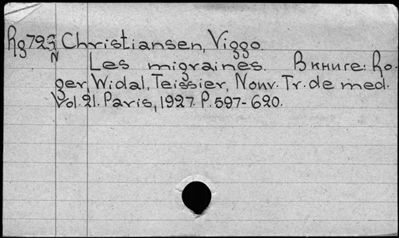 Rg723 Christiansen, Viggo.
N Les migraines. В книге: Ro-
ger, Widal, Teissier, Nouv. Tr. de med.
Vol. 21. Paris, 1927. P. 597-620.